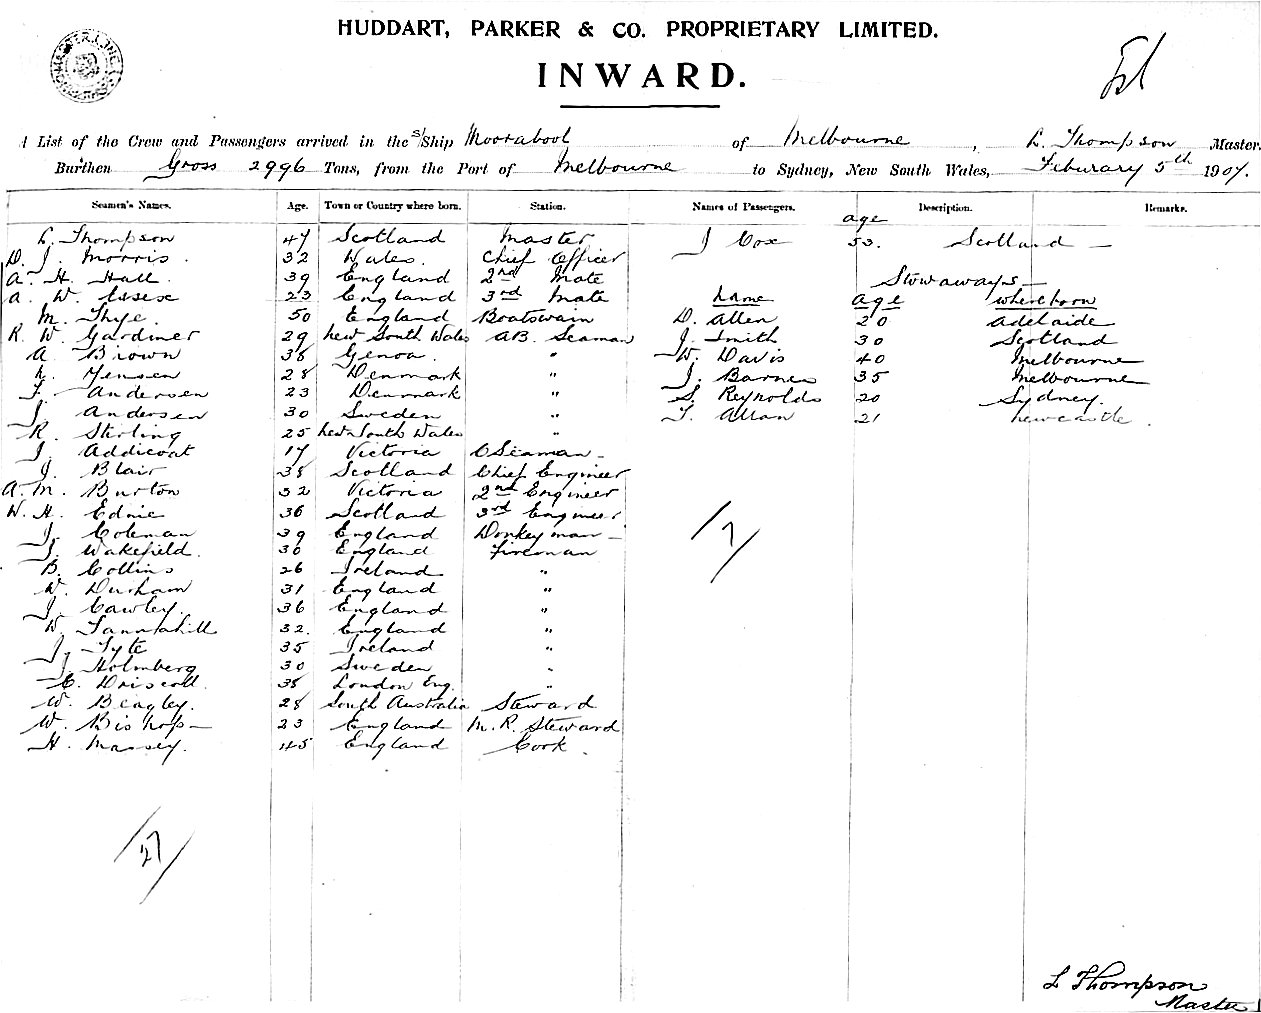 HUDDART, PARKER & CO. PROPRIETARY LIMITED.
INWARD.
A List of the Crew and Passengers arrived in the s/Ship Moorabool of Melbourne, L. Thompson Master.
Burthen Gross 2996 Tons, from the Port of Melbourne to Sydney, New South Wales, Feburary 5th 1907.
Seamen's Names. Age. Town or Country where born. Station. Names of Passengers. age Description. Remarks.
L. Thompson 47 Scotland Master J Cox 53. Scotland —
D. J. Morris. 32 Wales. Chief Officer
A. H. Hall 39 England 2nd Mate Stowaways —
A. W. Essex 23 England 3rd Mate name age where born
M. Thye. 50 England Boatswain D. Allen 20 Adelaide
R. W. Gardiner 29 New South Wales AB. Seaman J. Smith 30 Scotland
A. Brown 38 Genoa. " W. Davis 40 Melbourne
L. Yensen 28 Denmark " J. Barnes 35 Melbourne
F. Andersen 23 Denmark " S. Reynolds 20 Sydney.
J. Andersen 30 Sweden " T. Allan 21 Newcastle.
R. Stirling 25 New South Wales "
J. Addicoat 17 Victoria O Seaman —
J. Blair 38 Scotland Chief Engineer
A. M. Burton 32 Victoria 2nd Engineer
W. H. Ednie 36 Scotland 3rd Engineer
J. Coleman 39 England Donkeyman —
J. Wakefield. 30 England Fireman
B. Collins 26 Ireland "
W. Durham 31 England "
J. Cawley. 36 England "
W. Tannahill 32. England "
J. Tyte 35 Ireland "
J. Holmberg 30 Sweden "
C. Driscoll. 38 London Eng. "
W. Beagley. 28 South Australia Steward
W. Bishop — 23 England M. R. Steward
H. Massey. 45 England Cook.
/7/
/27/
L Thompson
Master